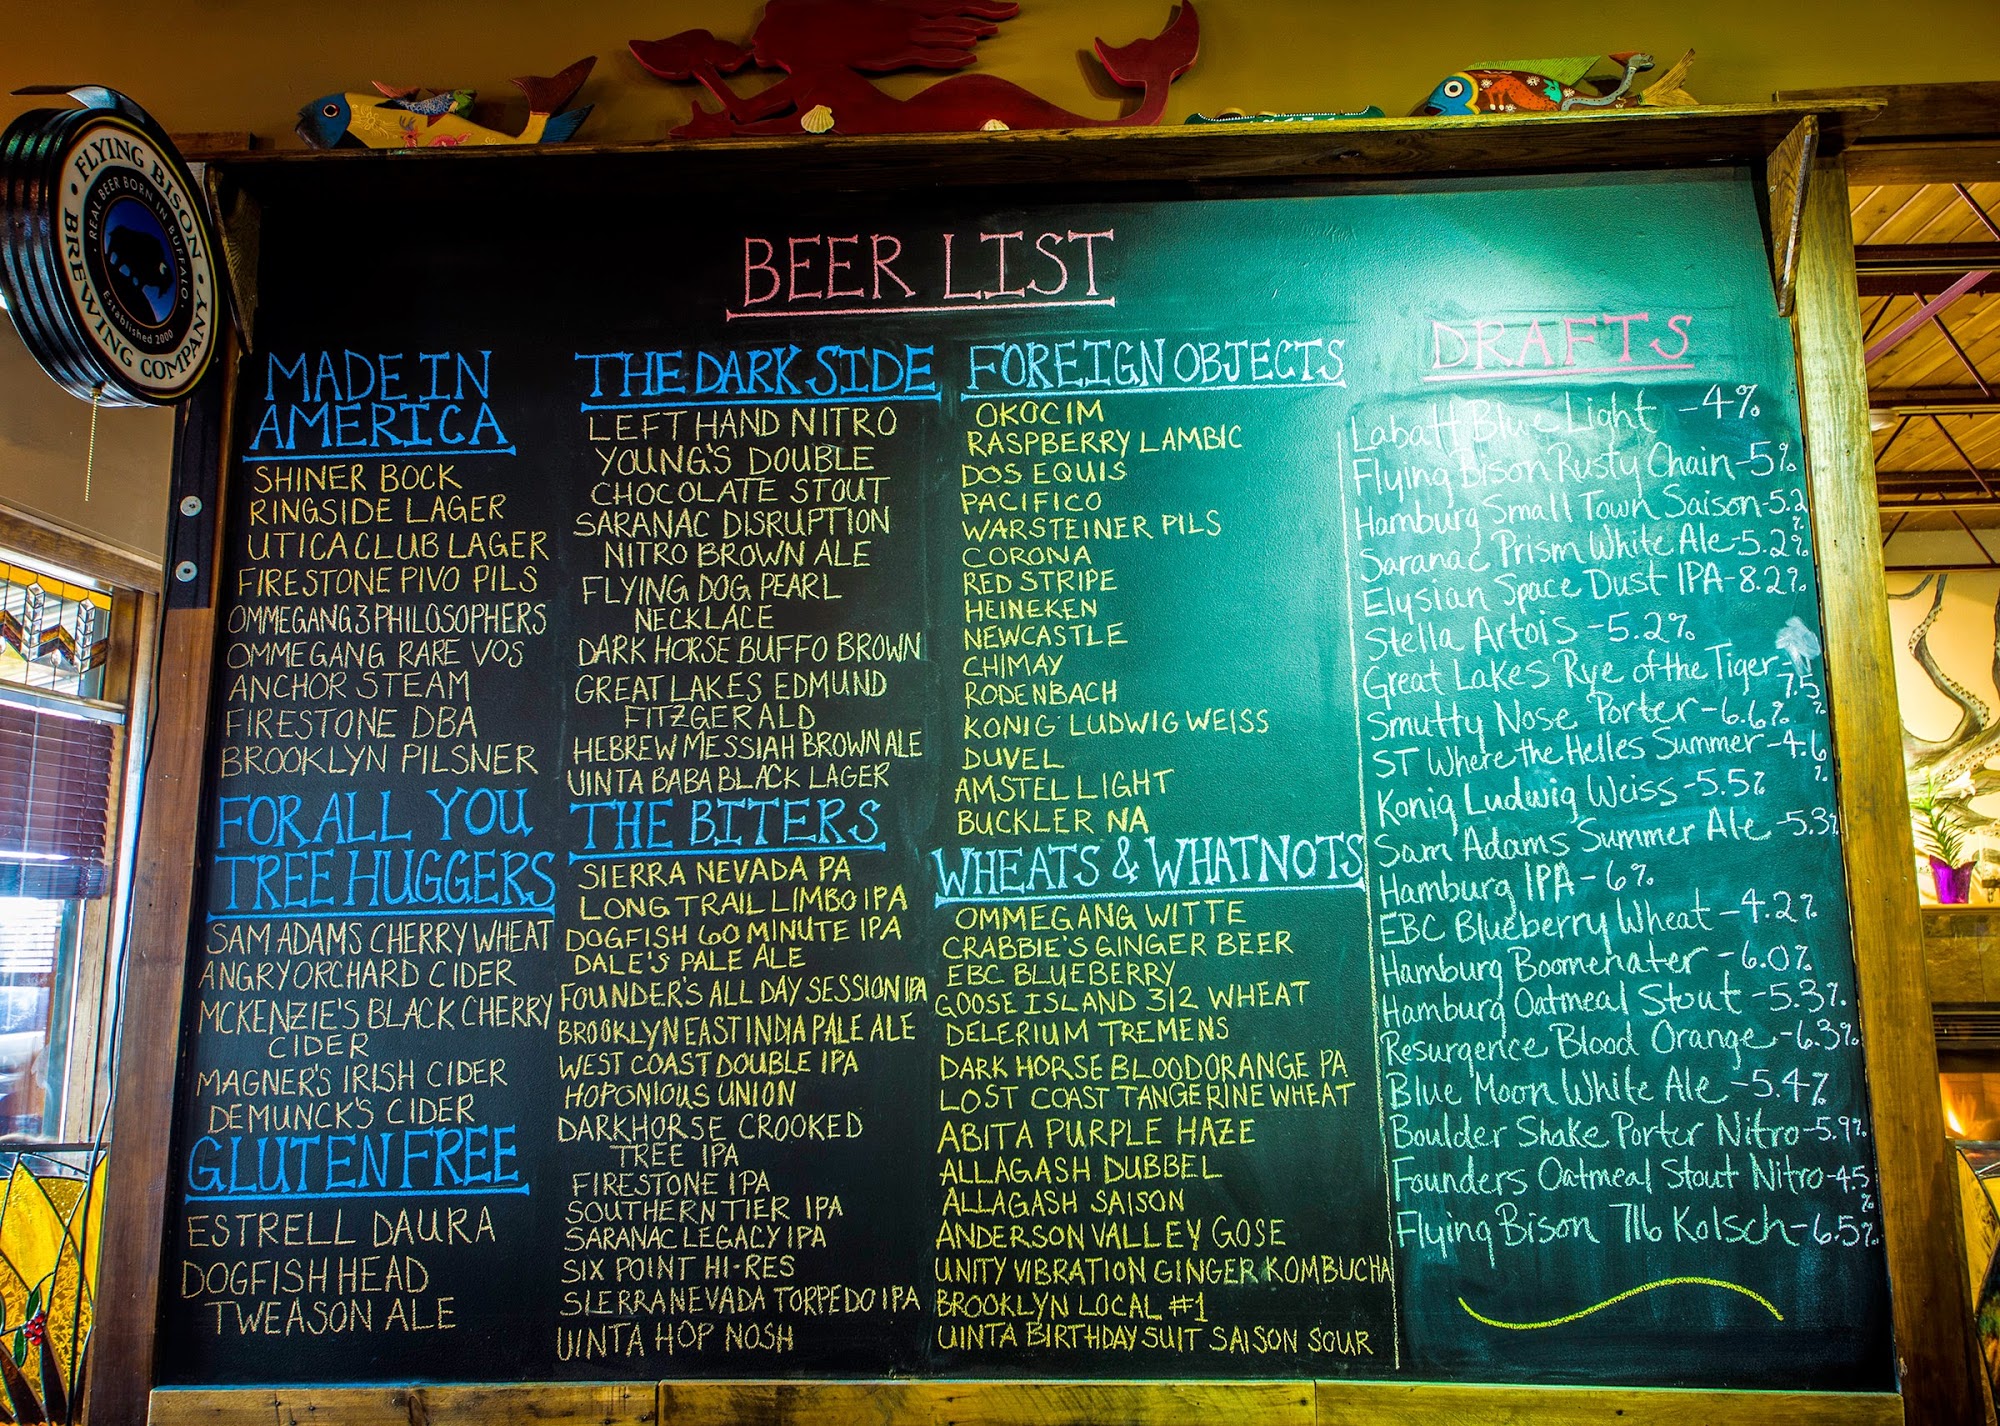 FLYING BISON
BREWING COMPANY
REAL BEER BORN IN BUFFALO
Established 2000
BEER LIST
MADE IN
AMERICA
SHINER BOCK
RINGSIDE LAGER
UTICA CLUB LAGER
FIRESTONE PIVO PILS
OMMEGANG 3 PHILOSOPHERS
OMMEGANG RARE VOS
ANCHOR STEAM
FIRESTONE DBA
BROOKLYN PILSNER
FOR ALL YOU
TREE HUGGERS
SAM ADAMS CHERRY WHEAT
ANGRY ORCHARD CIDER
MCKENZIE'S BLACK CHERRY
CIDER
MAGNER'S IRISH CIDER
DEMUNCK'S CIDER
GLUTEN FREE
ESTRELL DAURA
DOGFISH HEAD
TWEASON ALE
THE DARK SIDE
LEFT HAND NITRO
YOUNG'S DOUBLE
CHOCOLATE STOUT
SARANAC DISRUPTION
NITRO BROWN ALE
FLYING DOG PEARL
NECKLACE
DARK HORSE BUFFO BROWN
GREAT LAKES EDMUND
FITZGERALD
HEBREW MESSIAH BROWN ALE
UINTA BABA BLACK LAGER
THE BITERS
SIERRA NEVADA PA
LONG TRAIL LIMBO IPA
DOGFISH 60 MINUTE IPA
DALE'S PALE ALE
FOUNDER'S ALL DAY SESSION IPA
BROOKLYN EAST INDIA PALE ALE
WEST COAST DOUBLE IPA
HOPONIOUS UNION
DARKHORSE CROOKED
TREE IPA
FIRESTONE IPA
SOUTHERN TIER IPA
SARANAC LEGACY IPA
SIX POINT HI-RES
SIERRA NEVADA TORPEDO IPA
UINTA HOP NOSH
FOREIGN OBJECTS
OKOCIM
RASPBERRY LAMBIC
DOS EQUIS
PACIFICO
WARSTEINER PILS
CORONA
RED STRIPE
HEINEKEN
NEWCASTLE
CHIMAY
RODENBACH
KONIG LUDWIG WEISS
DUVEL
AMSTEL LIGHT
BUCKLER NA
WHEATS & WHATNOTS
OMMEGANG WITTE
CRABBIE'S GINGER BEER
EBC BLUEBERRY
GOOSE ISLAND 312 WHEAT
DELERIUM TREMENS
DARK HORSE BLOODORANGE PA
LOST COAST TANGERINE WHEAT
ABITA PURPLE HAZE
ALLAGASH DUBBEL
ALLAGASH SAISON
ANDERSON VALLEY GOSE
UNITY VIBRATION GINGER KOMBUCHA
BROOKLYN LOCAL #1
UINTA BIRTHDAY SUIT SAISON SOUR
DRAFTS
Labatt Blue Light - 4%
Flying Bison Rusty Chain - 5%
Hamburg Small Town Saison - 5.2
%
Saranac Prism White Ale - 5.2%
Elysian Space Dust IPA - 8.2%
Stella Artois - 5.2%
Great Lakes Rye of the Tiger -
7.5%
Smutty Nose Porter - 6.6%
ST Where the Helles Summer - 4.6
%
Konig Ludwig Weiss - 5.5%
Sam Adams Summer Ale - 5.3%
Hamburg IPA - 6%
EBC Blueberry Wheat - 4.2%
Hamburg Boomenater - 6.0%
Hamburg Oatmeal Stout - 5.3%
Resurgence Blood Orange - 6.3%
Blue Moon White Ale - 5.4%
Boulder Shake Porter Nitro - 5.9%
Founders Oatmeal Stout Nitro - 4.5
%
Flying Bison 716 Kolsch - 6.5%